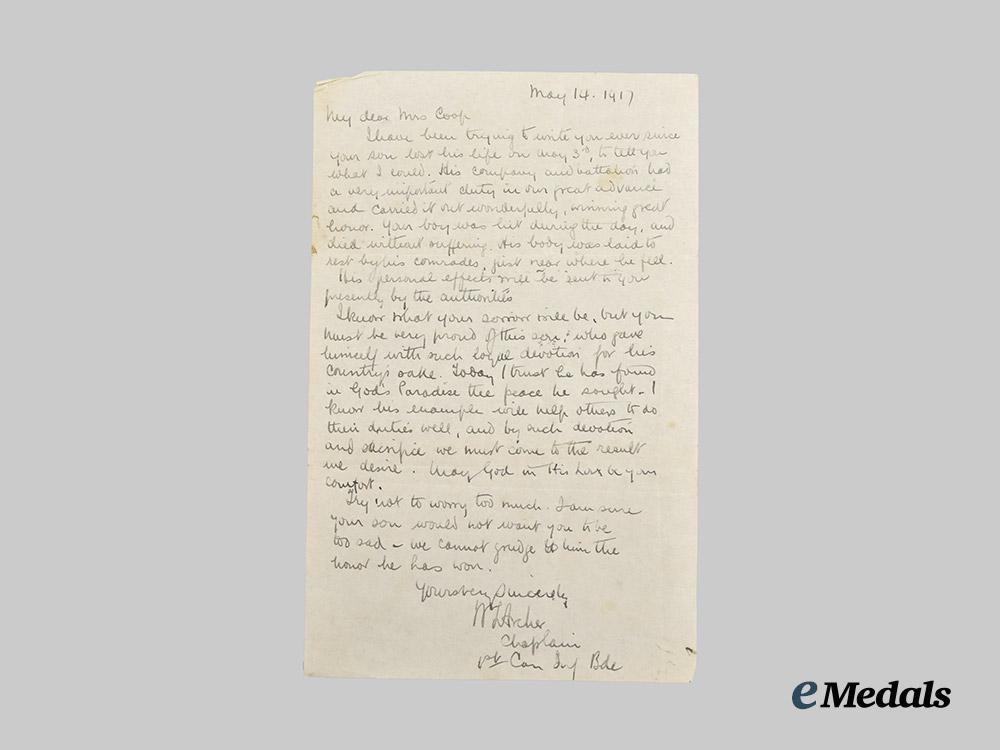 May 14. 1917
My dear Mrs Coop
I have been trying to write you ever since
your son lost his life on May 3rd, to tell you
what I could. His company and battalion had
a very important duty in our great advance
and carried it out wonderfully, winning great
honor. Your boy was hit during the day, and
died without suffering. His body was laid to
rest by his comrades, just near where he fell.
His personal effects will be sent to you
presently by the authorities
I know what your sorrow will be, but you
must be very proud of this son, who gave
himself with such loyal devotion for his
country's sake. Today I trust he has found
in God's Paradise the peace he sought. I
know his example will help others to do
their duties well, and by such devotion
and sacrifice we must come to the result
we desire. May God in His love be your
comfort.
Try not to worry too much. I am sure
your son would not want you to be
too sad - we cannot grudge to him the
honor he has won.
Yours very sincerely
W L Archer
Chaplain
1st Can Inf Bde
eMedals